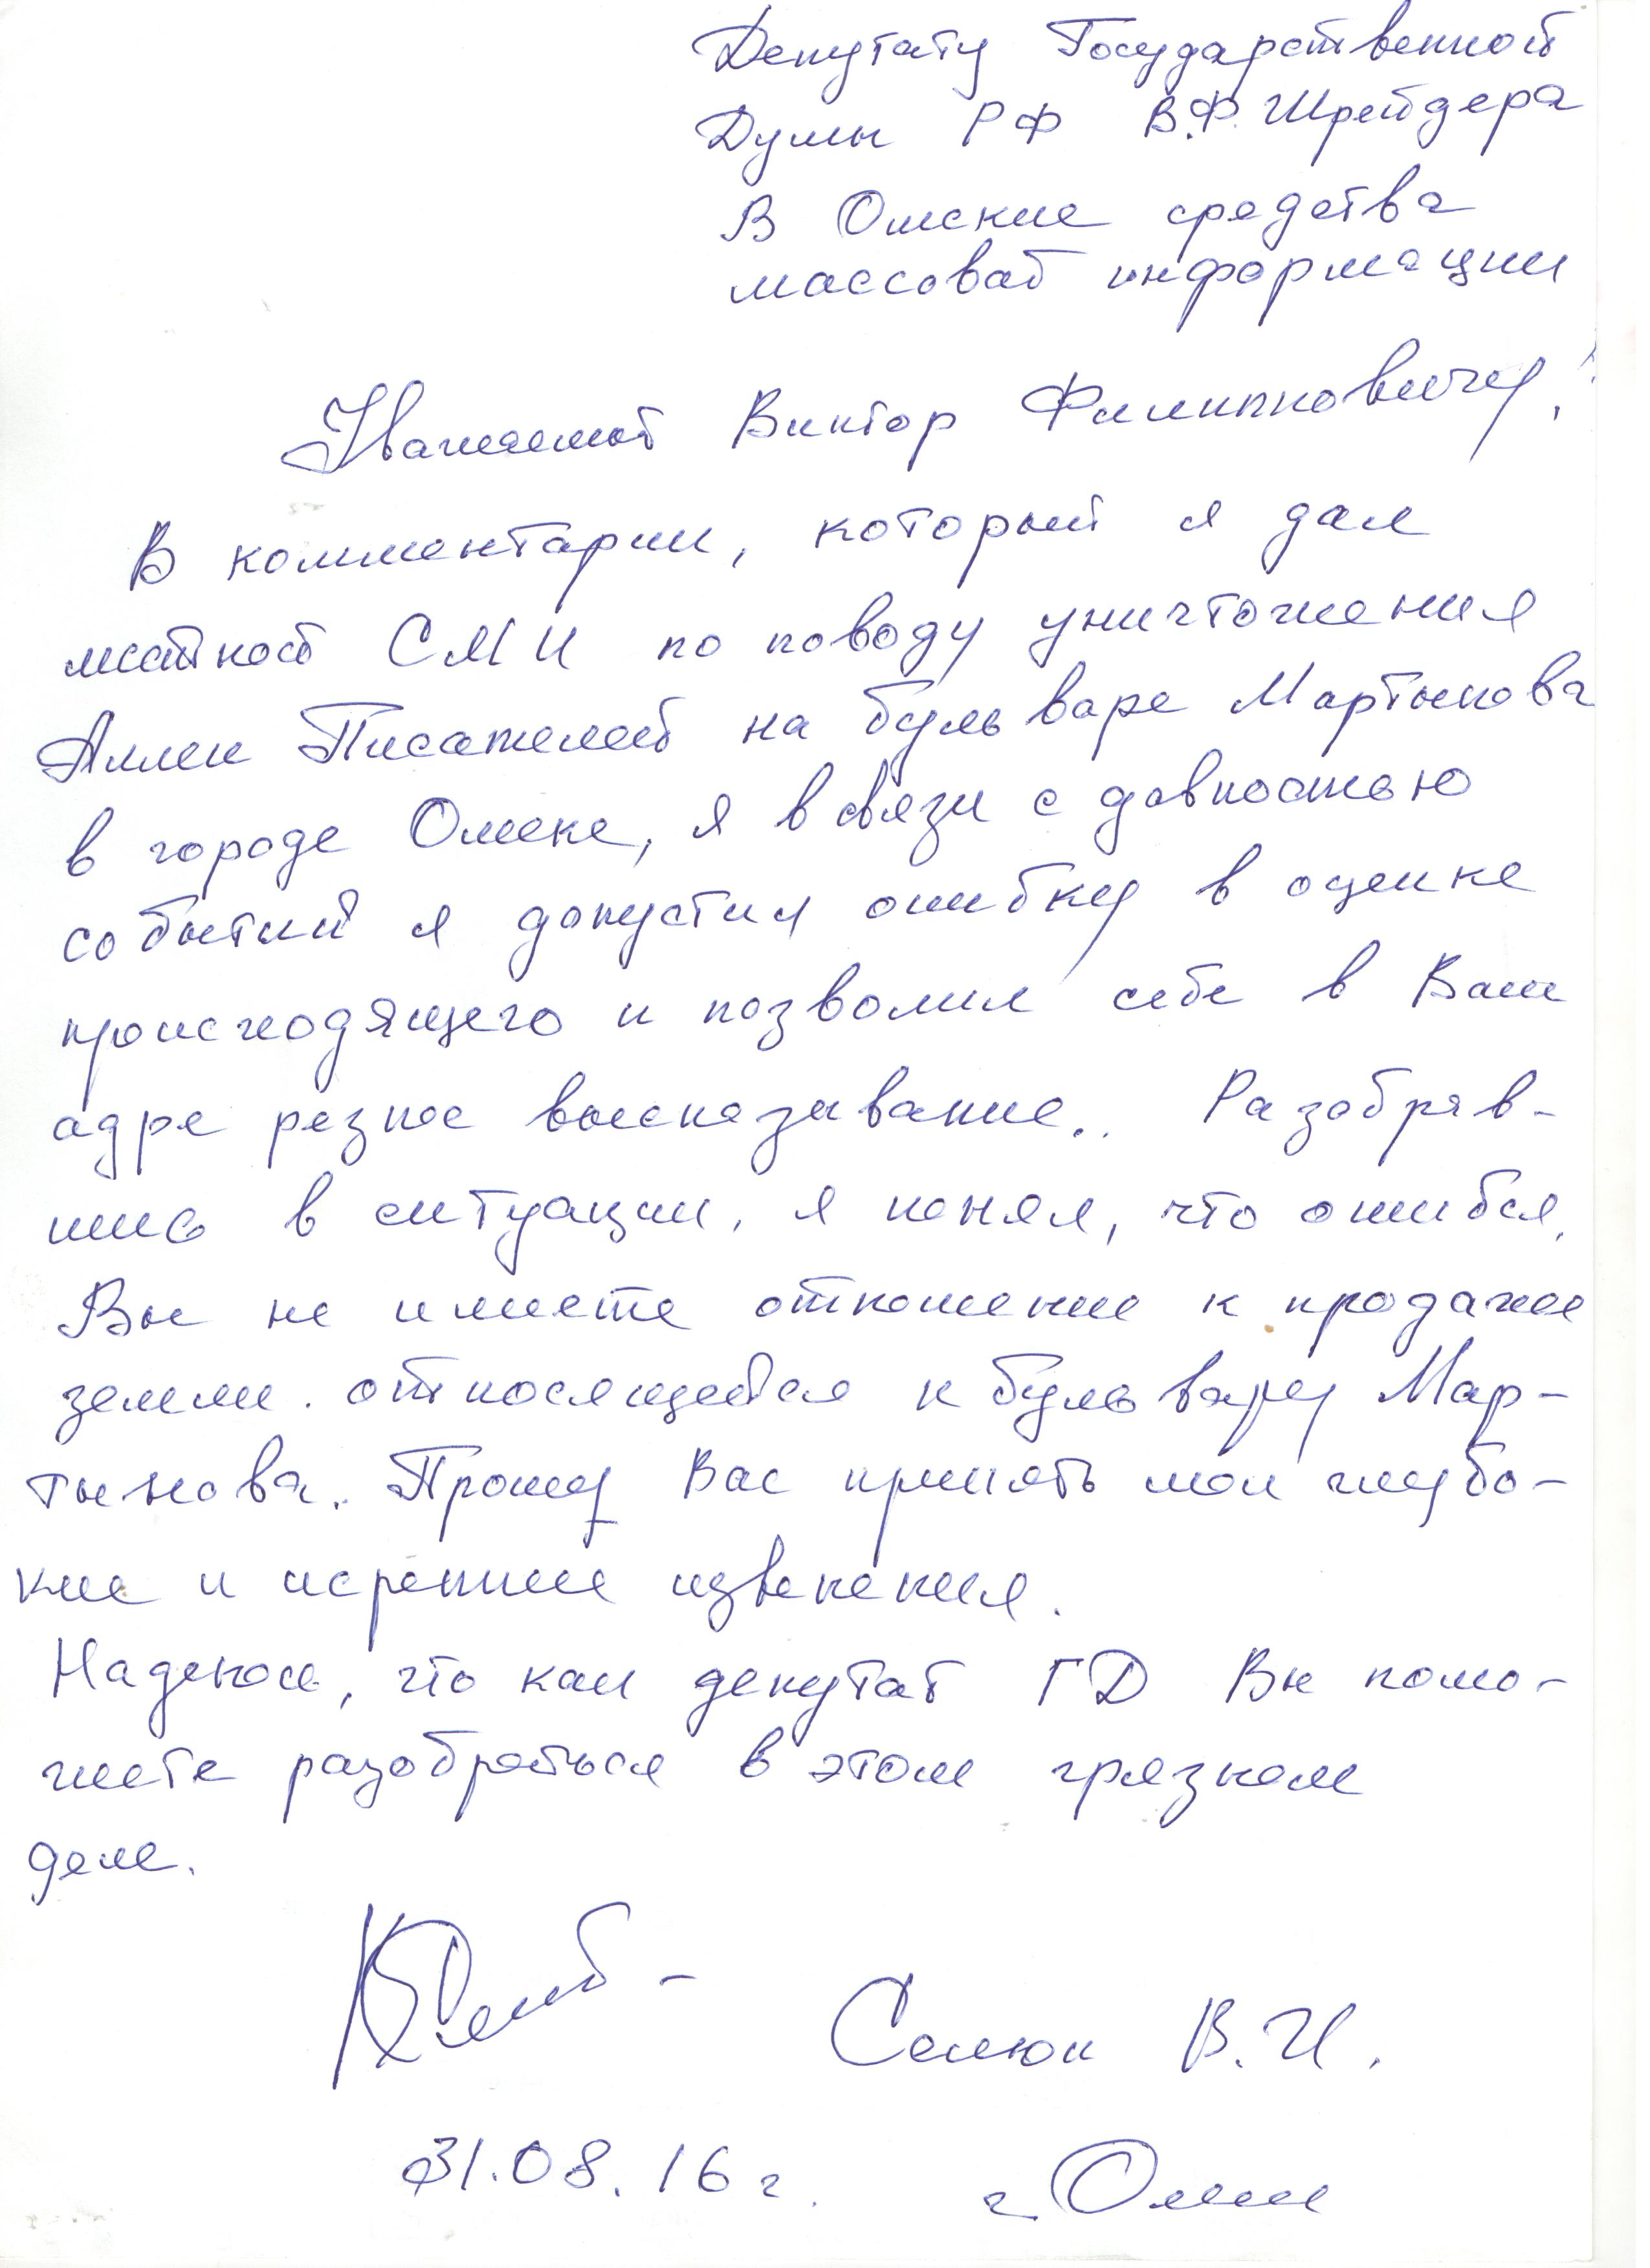 Депутату Государственной
Думы РФ В.Ф. Шрейдера
В Омские средства
массовай информации
Уважаемой Виктор Филипповичу!
В комментарии, который я дал
местной СМИ по поводу уничтожения
Аллеи Писателей на бульваре Мартынова
в городе Омске, я в связи с давностью
событий я допустил ошибку в оценке
происходящего и позволил себе в Ваш
адре резкое высказывание.. Разобрав-
шись в ситуации, я понял, что ошибся.
Вы не имеете отношение к продаже
земли. относящейся к бульвару Мар-
тынова. Прошу Вас принять мои глубо-
кие и искрение извенения.
Надеюсь, что как депутат ГД Вы помо-
жете разобраться в этом грязном
деле.
Селюк В.И.
31.08.16 г. г Омск